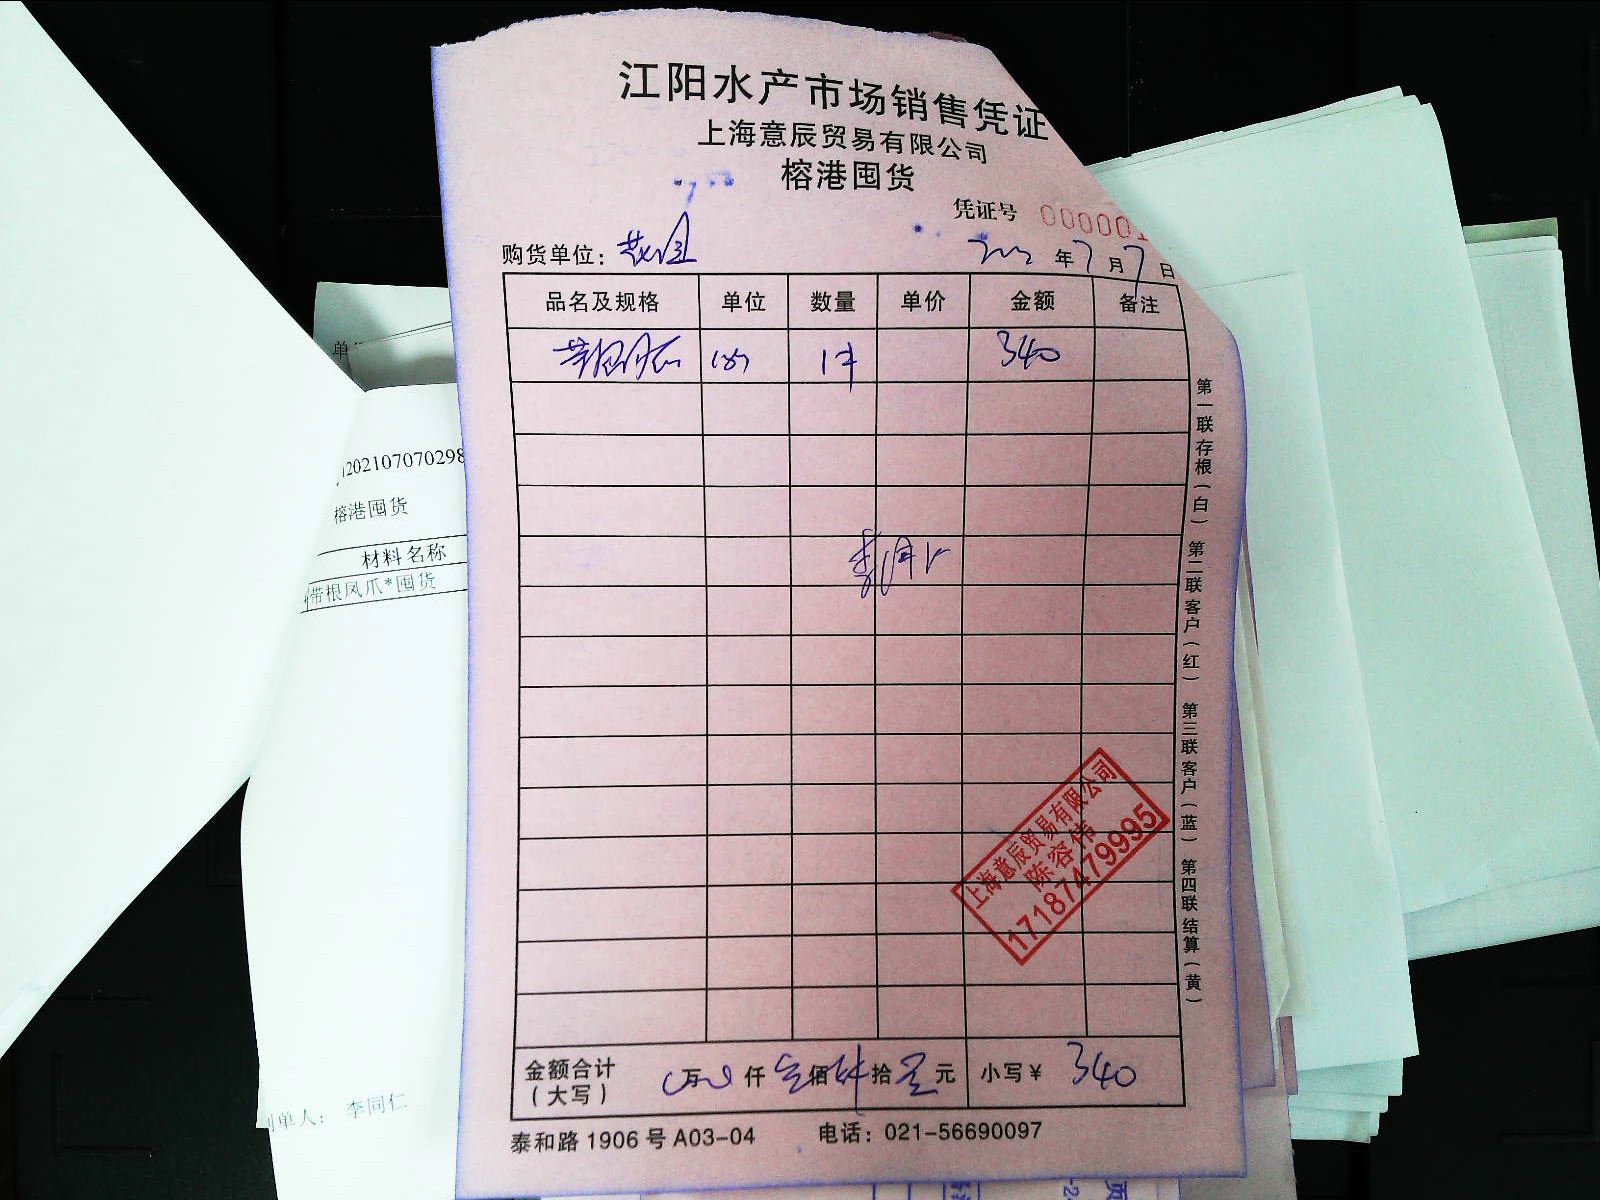 江阳水产市场销售凭证
上海意辰贸易有限公司
榕港囤货
凭证号 000001
购货单位：
年 7 月 7 日
品名及规格 单位 数量 单价 金额 备注
1件 340
第一联存根（白） 第二联客户（红） 第三联客户（蓝） 第四联结算（黄）
上海意辰贸易有限公司
陈容伟
17187479995
金额合计（大写） 万 仟 佰 拾 元 小写￥ 340
泰和路1906号A03-04 电话：021-56690097
202107070298
榕港囤货
材料名称
带根凤爪*囤货
制单人： 李同仁
单
页